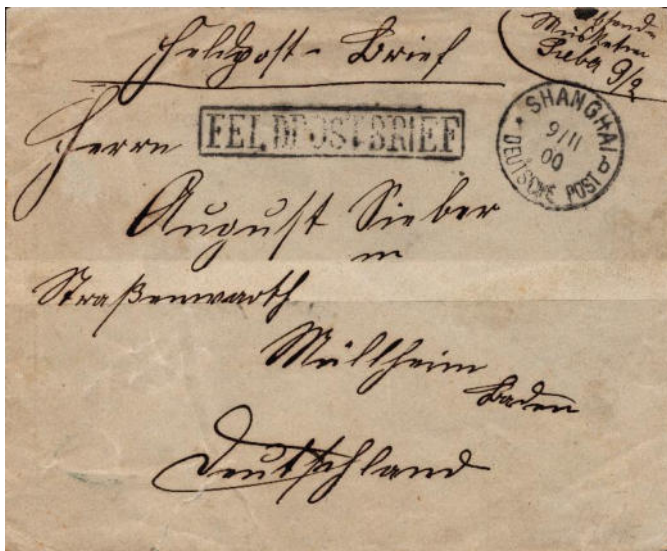 Feldpost-Brief
Absender
Musketier
Sieber 9/2
Herrn
FELDPOSTBRIEF
SHANGHAI
9/11
00
b
* DEUTSCHE POST
August Sieber
in
Straßenwarth
Müllheim
Baden
Deutschland